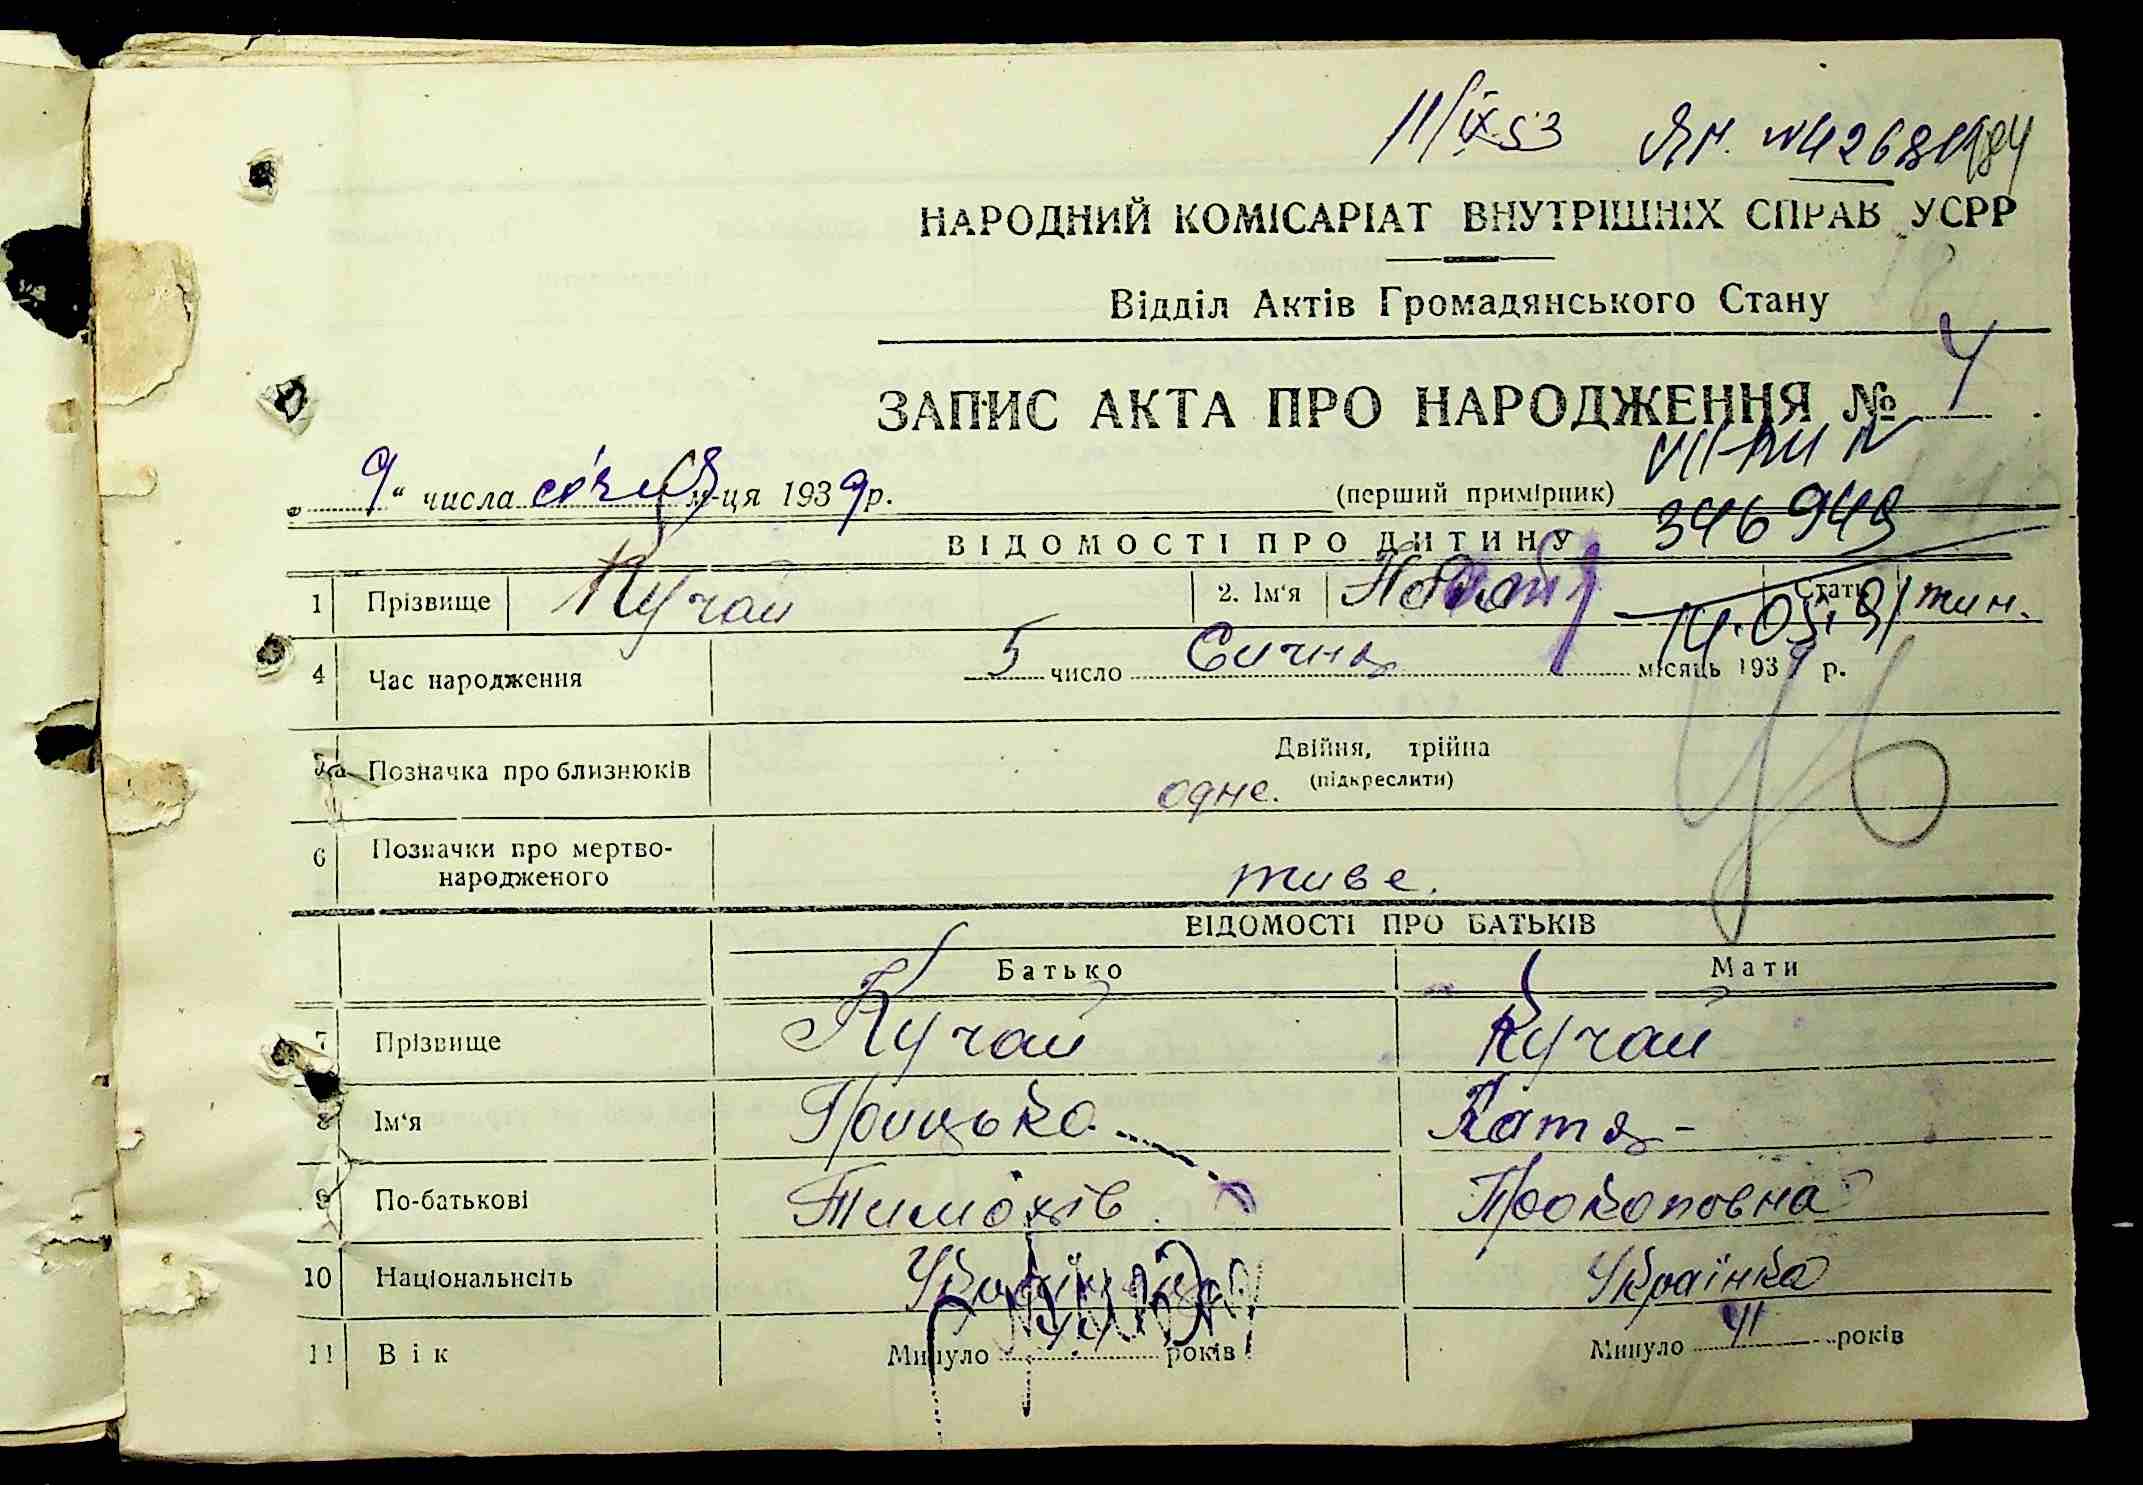 11/IX 53
НАРОДНИЙ КОМІСАРІАТ ВНУТРІШНІХ СПРАВ УСРР
Відділ Актів Громадянського Стану
ЗАПИС АКТА ПРО НАРОДЖЕННЯ № 4
„ 9 “ числа січня м-ця 1939 р. (перший примірник)
346948
ВІДОМОСТІ ПРО ДИТИНУ
1 Прізвище Кучай 2. Ім‘я Стать жін.
4 Час народження 5 число Січня місяць 1939 р.
Позначка про близнюків Двійня, трійна
одне. (підкреслити)
6 Позначки про мертво-
народженого живе.
ВІДОМОСТІ ПРО БАТЬКІВ
Батько Мати
7 Прізвище Кучай Кучай
8 Ім‘я Грицько Катя
9 По-батькові Тимохів Прокоповна
10 Національнсіть Українка
11 Вік Минуло років Минуло 41 років